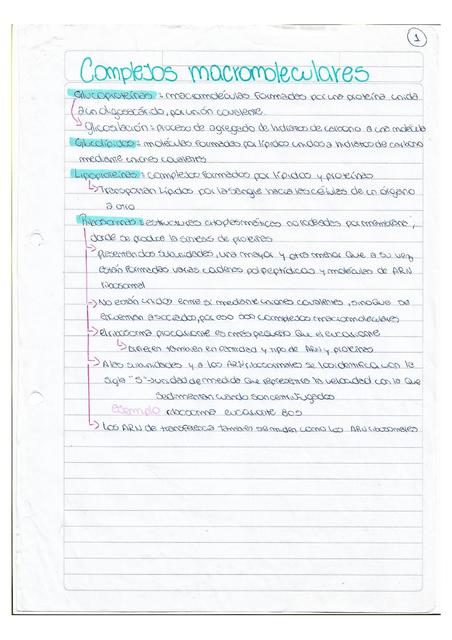 1
Complejos macromoleculares
Glucoproteínas: macromoléculas formadas por una proteína unida
a un oligosacárido, por unión covalente
Glicosilación: proceso de agregado de hidratos de carbono a una molécula
Glucolípidos: moléculas formadas por lípidos unidos a hidratos de carbono
mediante uniones covalentes
Lipoproteínas: complejos formados por lípidos y proteínas
Transportan lípidos por la sangre hacia las células de un órgano
a otro
Ribosomas: estructuras citoplasmáticas no rodeadas por membrana,
donde se produce la síntesis de proteínas
Presentan dos subunidades, una mayor y otra menor que a su vez
están formadas varias cadenas polipeptídicas y moléculas de ARN
ribosomal
No están unidos entre sí mediante uniones covalentes, sino que se
encuentran asociados, por eso son complejos macromoleculares
El ribosoma procarionte es más pequeño que el eucarionte
Difieren también en cantidad y tipo de ARN y proteínas
A las subunidades y a los ARN ribosomales se los identifica con la
sigla "S" unidad de medida que representa la velocidad con la que
sedimentan cuando son centrifugados
ejemplo ribosoma eucarionte 80S
Los ARN de transferencia también se miden como los ARN ribosomales